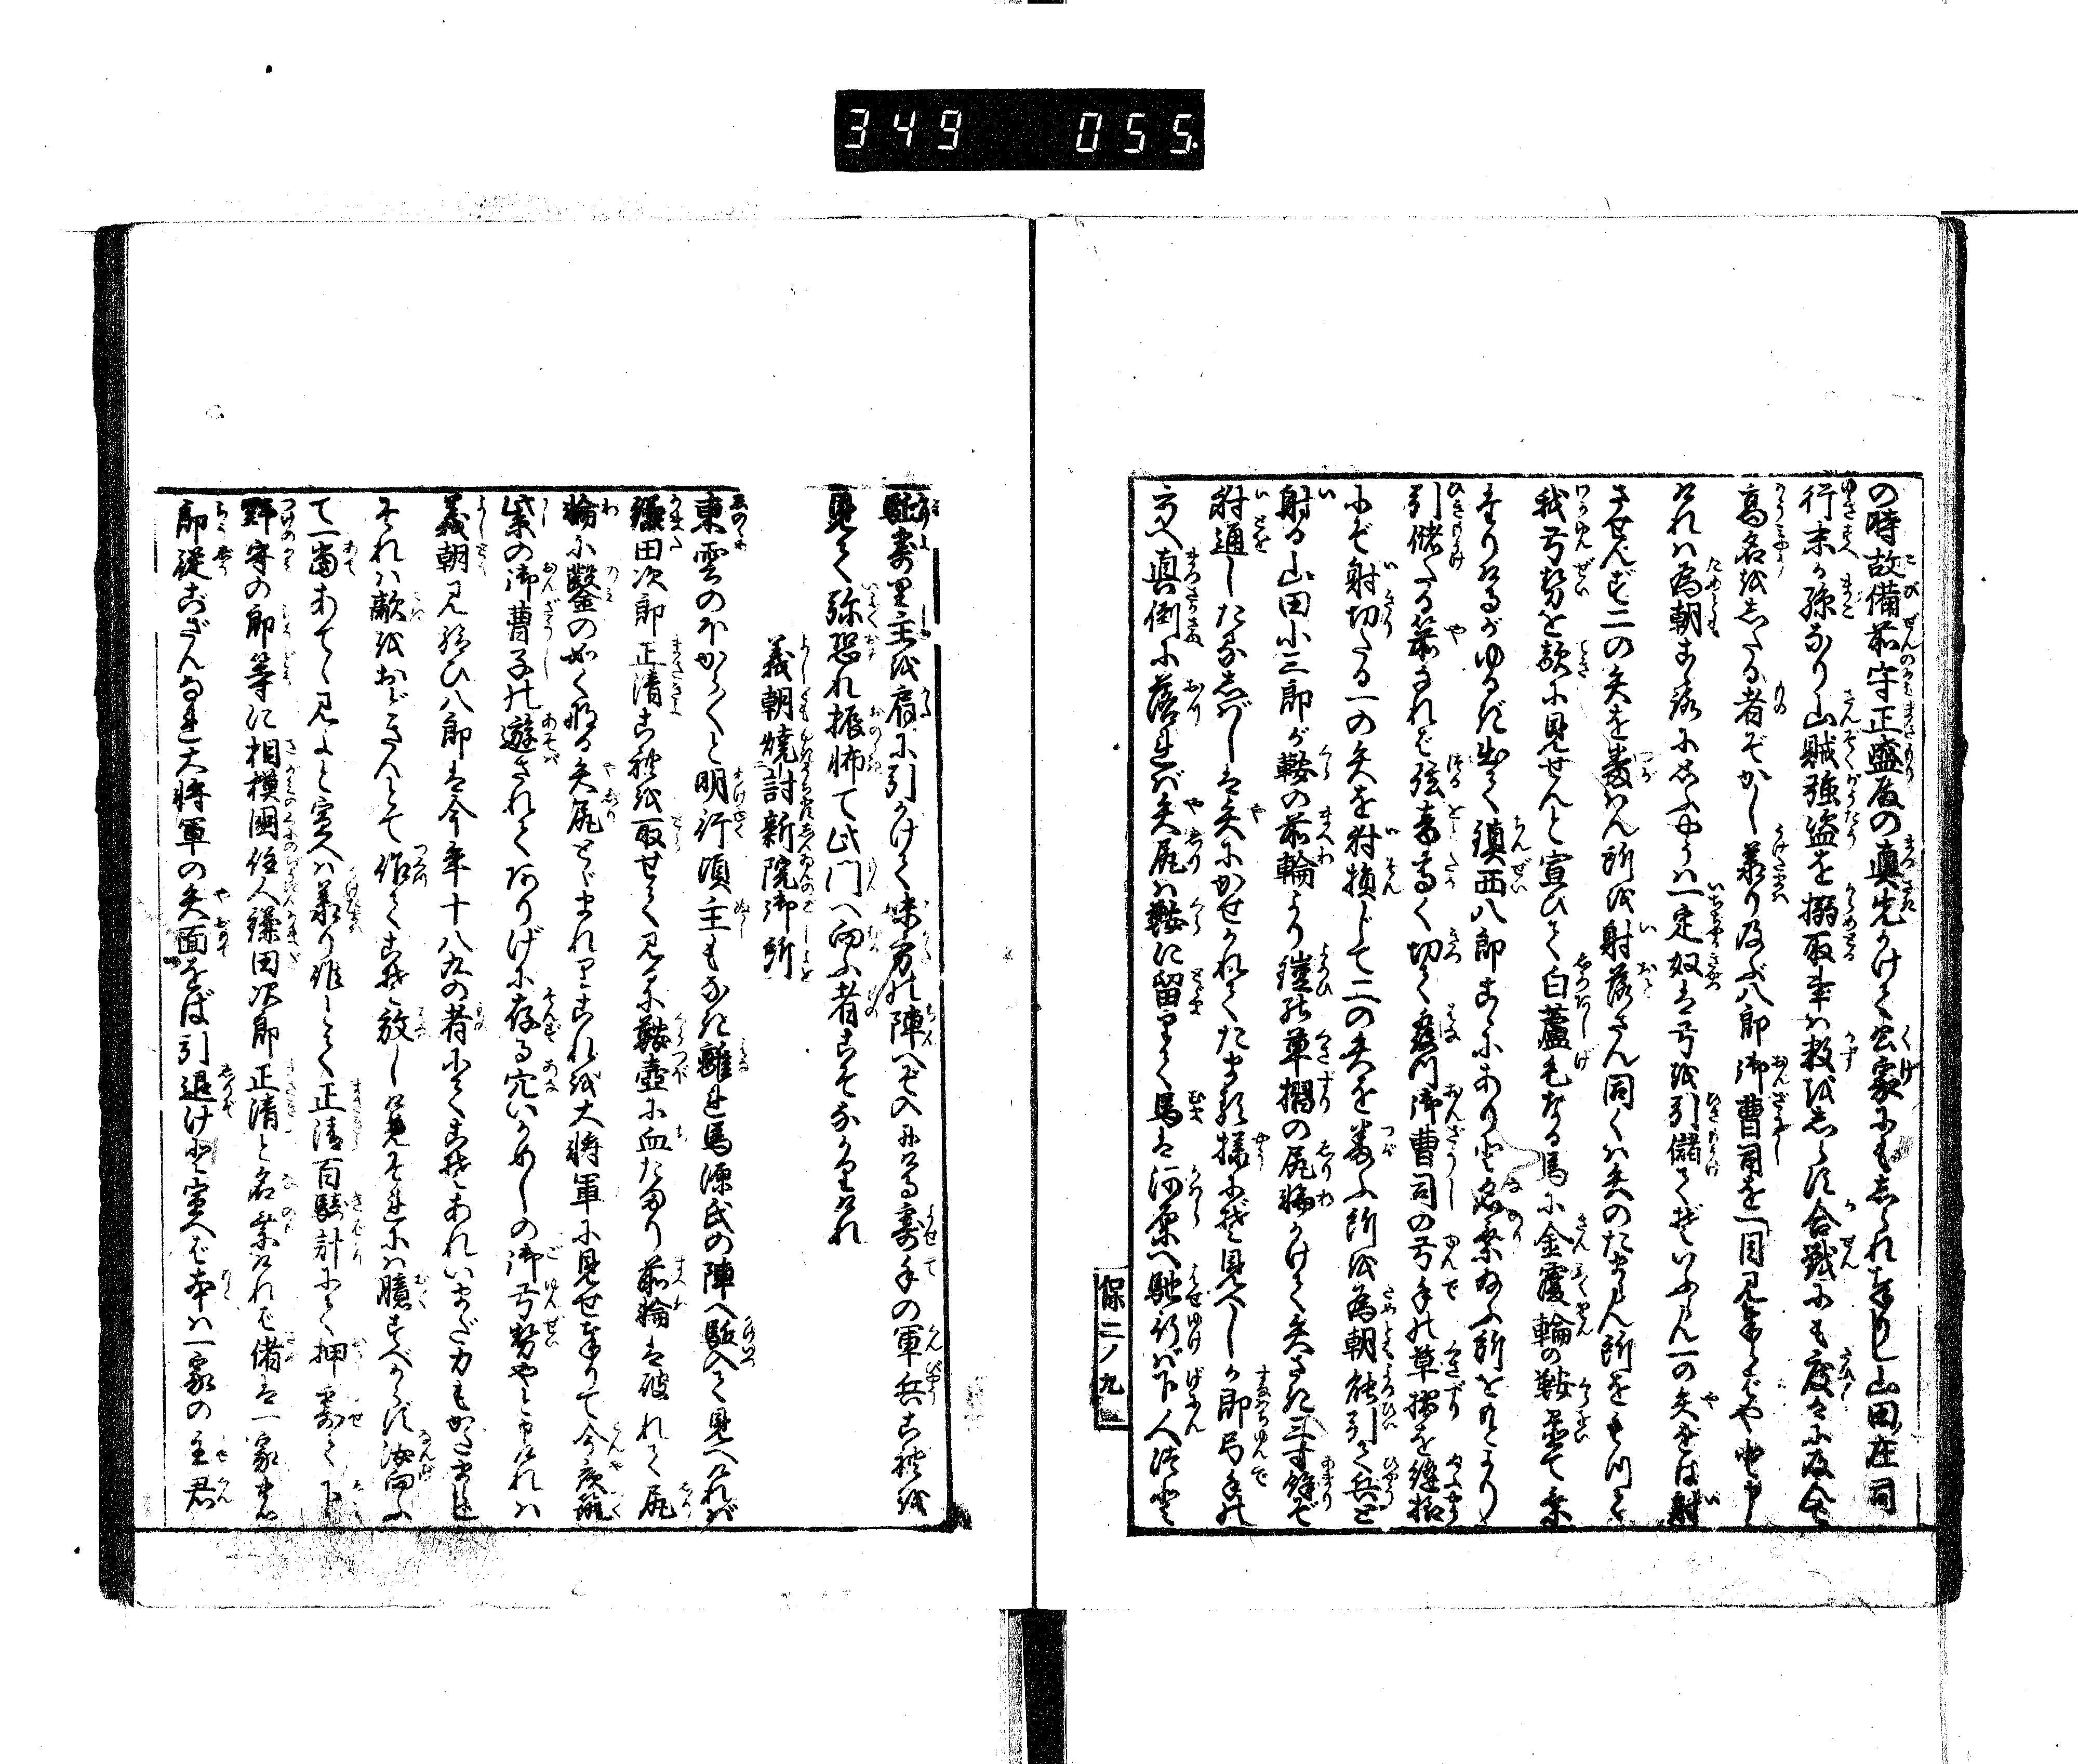 349 055
の時故備前守正盛殿の真先かけて公家にもしられ奉りし山田庄司
行末か孫なり山賊強盗を搦取事は数をしらす合戦にも度々に及て
高名をしたる者ぞかし承り及ぶ八郎御曹司を一目見奉らばやと申
けれは為朝
一定奴は弓を引儲てぞいふらん一の矢をは射
させんず二の矢を番はん所を射落さん同くは矢のたまらん所を
我弓勢を敵に見せんと宣ひて白蘆毛なる馬に金覆輪の鞍置て乗
たりけるがゆるぎ出て鎮西八郎こゝにありと名乗給ふ所をもとより
引儲たる箭なれば弦音高く切て放つ御曹司の弓手の草摺を縫様
にぞ射切たる一の矢を射損じて二の矢を番ふ所を為朝能引て兵と
射る山田小三郎が鞍の前輪より鎧の草摺の尻輪かけて矢さき三寸餘ぞ
射通したるしばしは矢にかせがれてたまる様にぞ見へしか即弓手の
方へ真倒に落れば矢尻は鞍に留りて馬は河原へ馳行ば下人つと
保二ノ九
馳寄り主を肩に引かけて味方の陣へぞ入にける寄手の軍兵これを
見て弥恐れ振怖て此門へ向ふ者こそなかりけれ
義朝焼討新院御所
東雲のほがら〳〵と明行頃主もなき離れ馬源氏の陣へ駈入て見へければ
鎌田次郎正清これを取せて見るに鞍壺に血たまり前輪は破れて尻
輪に鑿の如くなる矢尻とゞまれりこれを大将軍に見せ奉りて今夜筑
紫の御曹子の遊されてありげに存る穴いかめしの御弓勢やと申ければ
義朝見給ひ八郎は今年十八九の者にてこそあれいまだ力もかたまら
それは敵をおどさんとて作てこそ放しけめそれには臆すべからず汝向ふ
て一當あてゝ見よと宣へは承り候とて正清百騎計にて押寄て下
野守の郎等に相模國住人鎌田次郎正清と名乗ければ備は一家の
郎従ござんなれ大将軍の矢面をば引退けと宣へば本は一家の主君